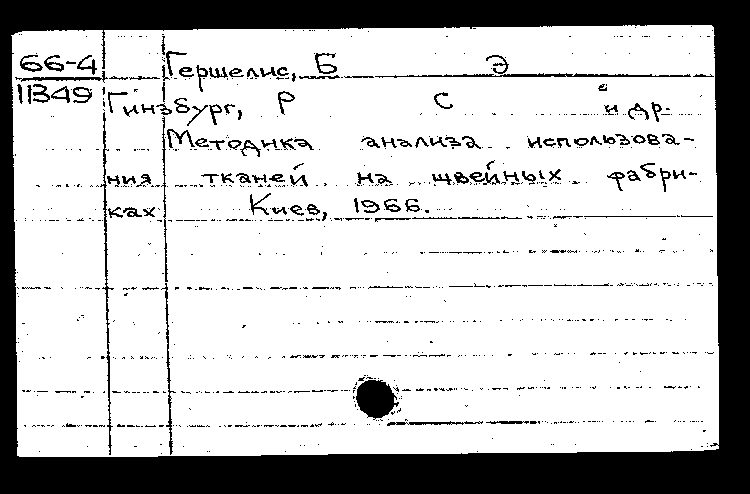 66-4 Гершелис, Б Э
11349 Гинзбург, Р С и др.
Методика анализа использова-
ния тканей на швейных фабри-
ках Киев, 1966.